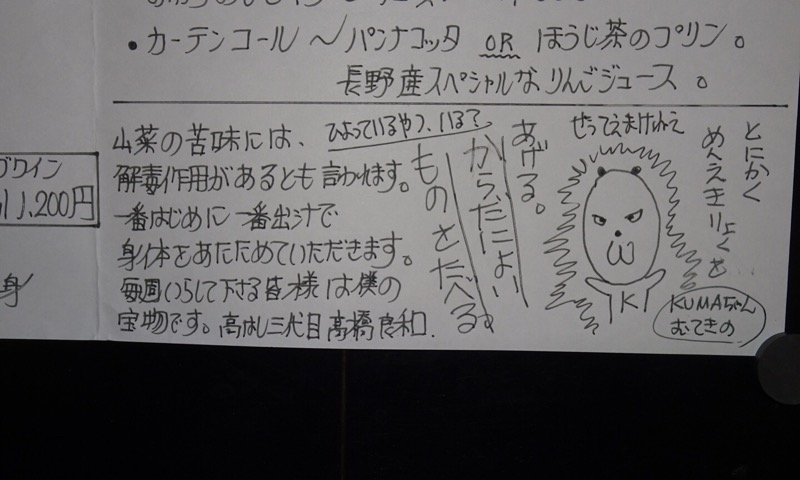 • カーテンコール 〜パンナコッタ OR ほうじ茶のプリン。
長野産スペシャルなりんごジュース。
グワイン
1,200円
身
山菜の苦味には、
解毒作用があるとも言われます。
一番はじめに一番出汁で
身体をあたためていただきます。
毎週いらして下さる皆様は僕の
宝物です。高はし三代目 高橋良和.
ひよっているやつ、いる?
とにかく
めんえきりょくを
あげる。
からだによい
ものをたべる。
ぜってえまけねえ
K
KUMAちゃん
むてきの